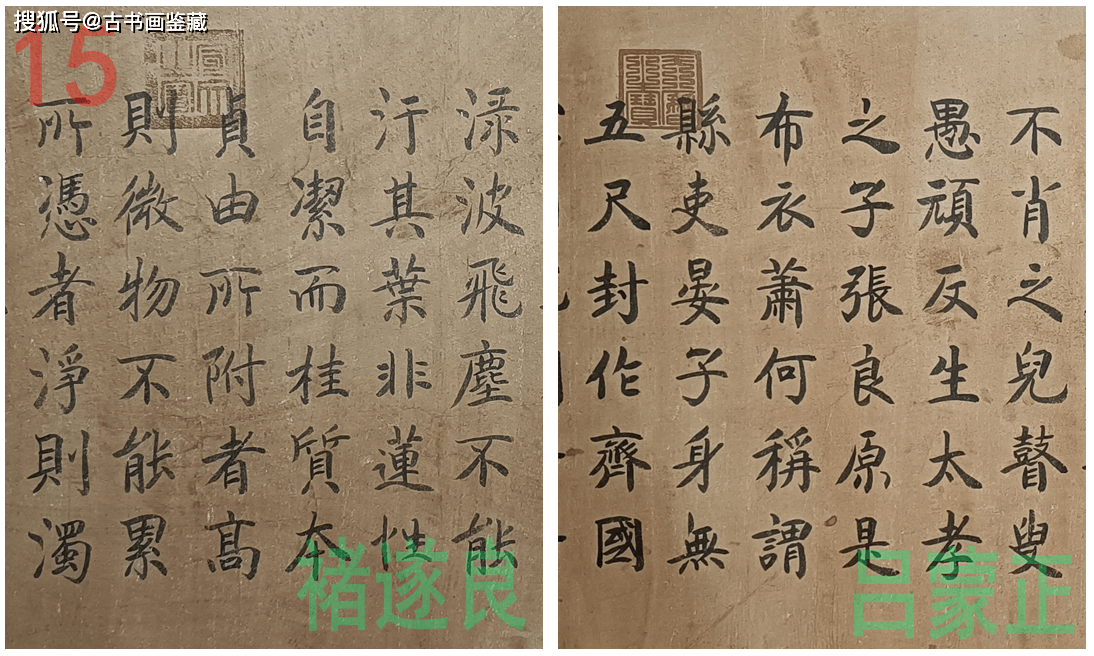 搜狐号@古书画鉴藏
15
渌波飛塵不能
汙其葉非蓮性
自潔而桂質本
貞由所附者高
則微物不能累
所憑者淨則濁
褚遂良
不肖之兒瞽叟
愚頑反生太孝
之子張良原是
布衣蕭何稱謂
縣吏晏子身無
五尺封作齊國
吕蒙正